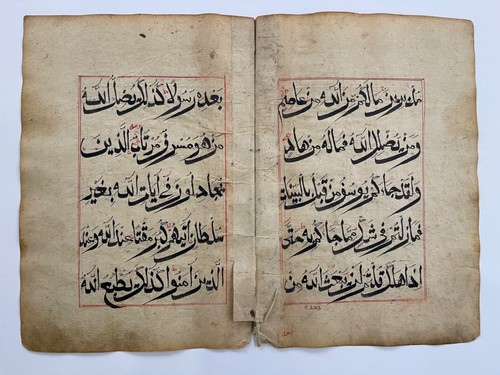 مدبرين مالكم من الله من عاصم
ومن يضلل الله فماله من هاد
ولقد جاءكم يوسف من قبل بالبينات
فمازلتم في شك مما جاءكم به حتى
اذا هلك قلتم لن يبعث الله من
بعده رسولا كذلك يضل الله
من هو مسرف مرتاب الذين
يجادلون في آيات الله بغير
سلطان اتيهم كبر مقتا عند الله وعند
الذين امنوا كذلك يطبع الله